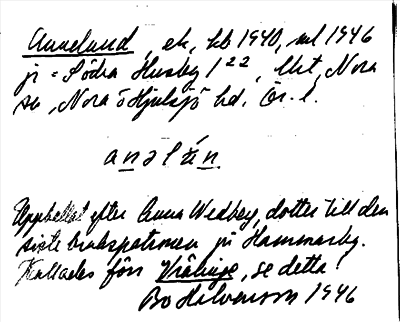 Annelund, ek, hb 1940, ml 1946
ji = Södra Husby 1²², Ukt, Nora
sn, Nora o Hjulsjö hd. Ör. l.
anəlún.
Uppkallat efter Anna Wedbey, dotter till den
siste brukspatronen på Hammarby.
Kallades förr Vrälinge, se detta!
Bo Halvarsson 1946